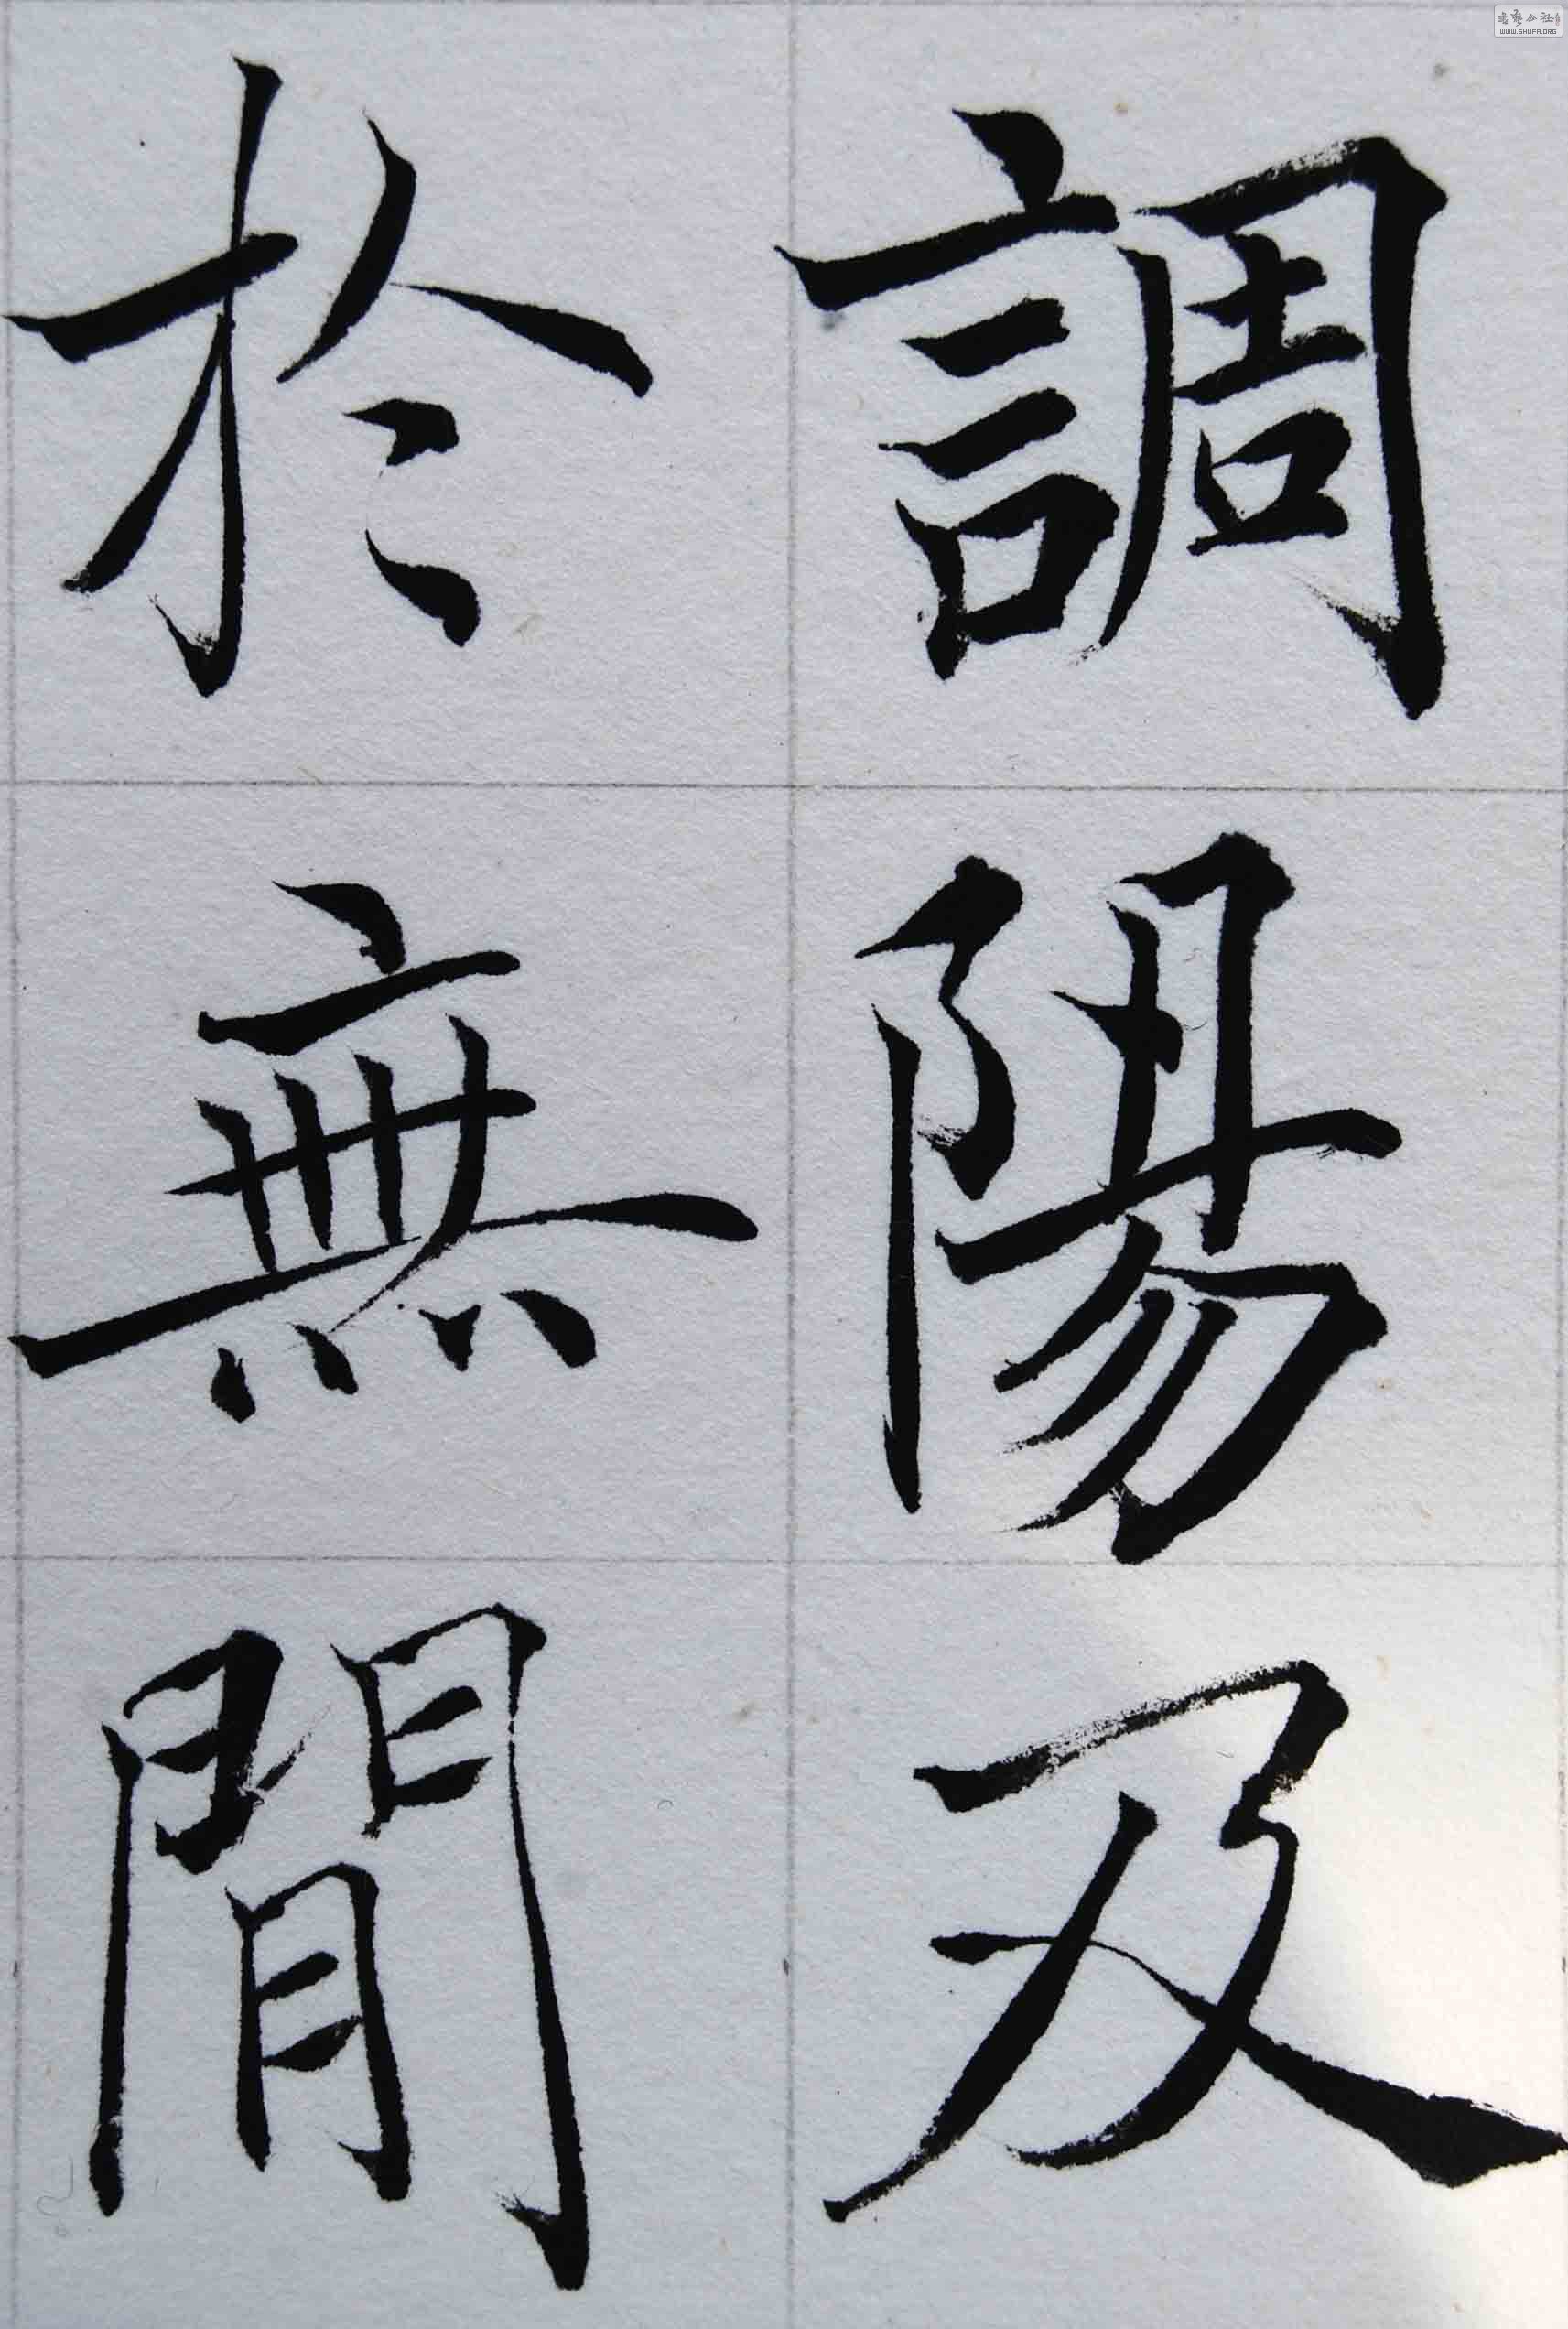 調陽及
於無閒
書法公社
WWW.SHUFA.ORG